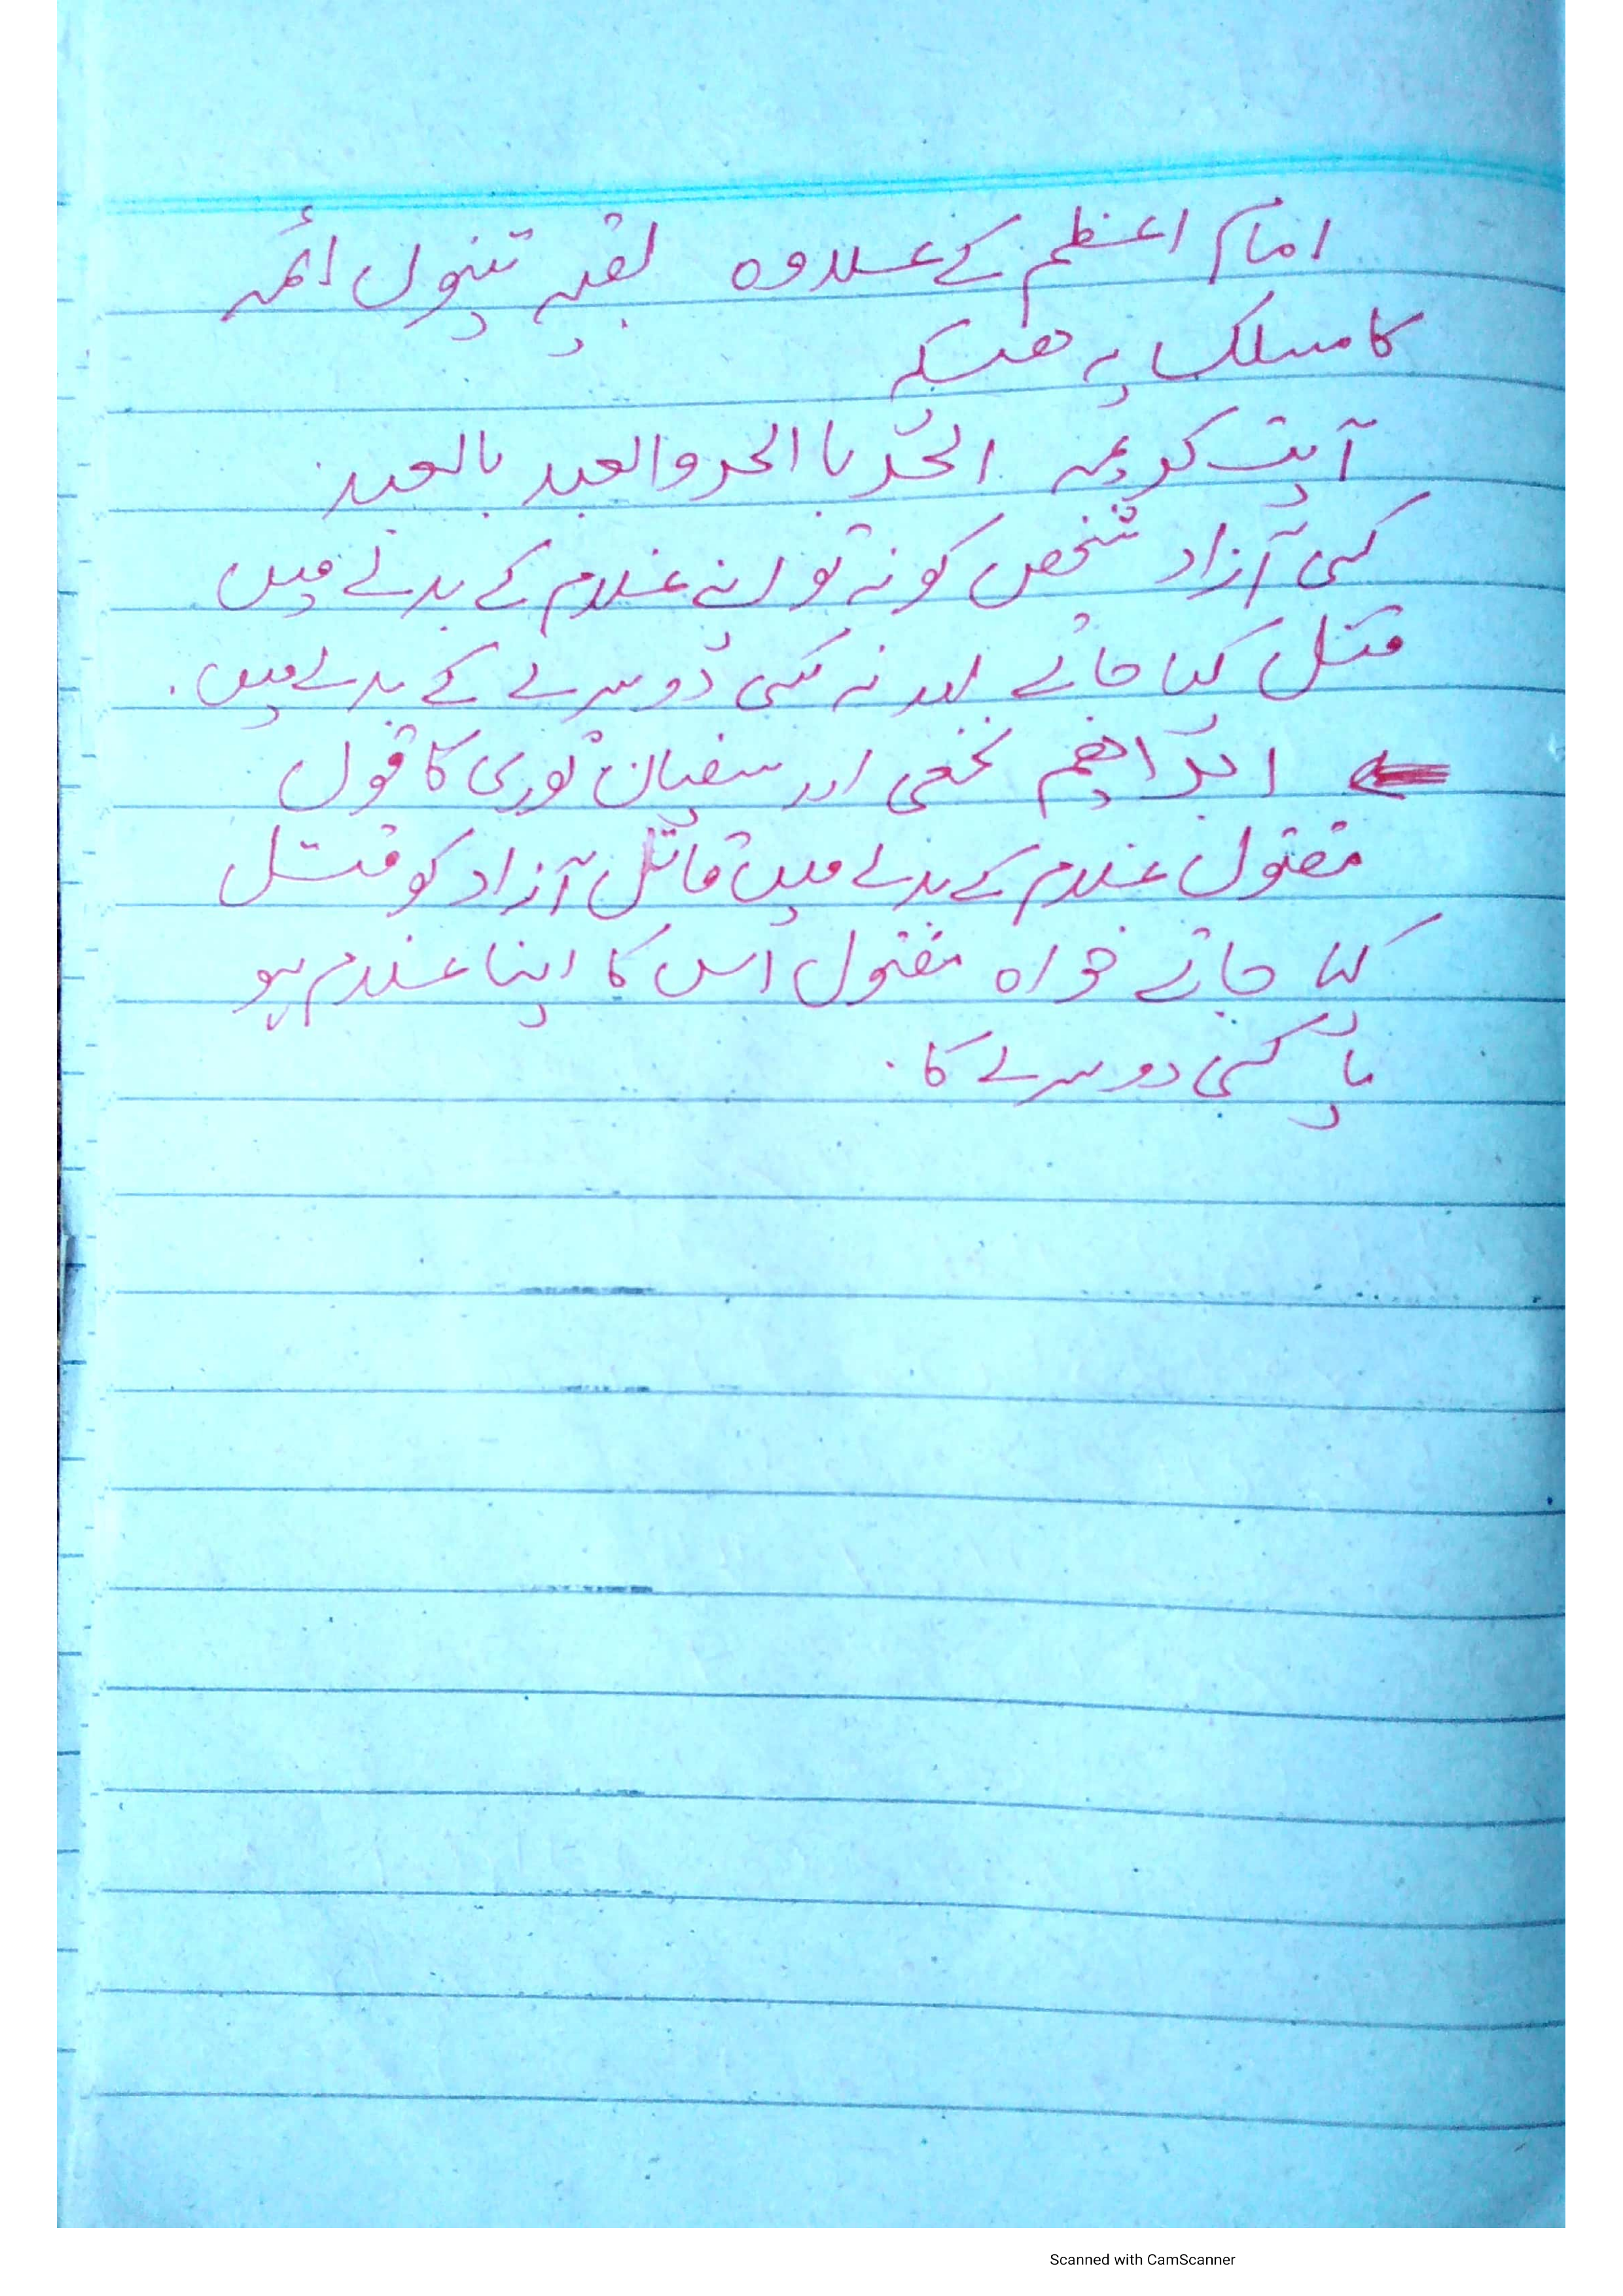 امام اعظم کے علاوہ بقیہ تینوں ائمہ
کا مسلک یہ ھیکہ
آیت کریمہ الحُر با الحر والعبد بالعبد
کسی آزاد شخص کو نہ تو اپنے غلام کے بدلے میں
قتل کیا جائے اور نہ کسی دوسرے کے بدلے میں.
ابراھیم نخعی اور سفیان ثوری کا قول
مقتول غلام کے بدلے میں قاتل آزاد کو قتل
کیا جائے خواہ مقتول اس کا اپنا غلام ہو
یا کسی دوسرے کا.
Scanned with CamScanner